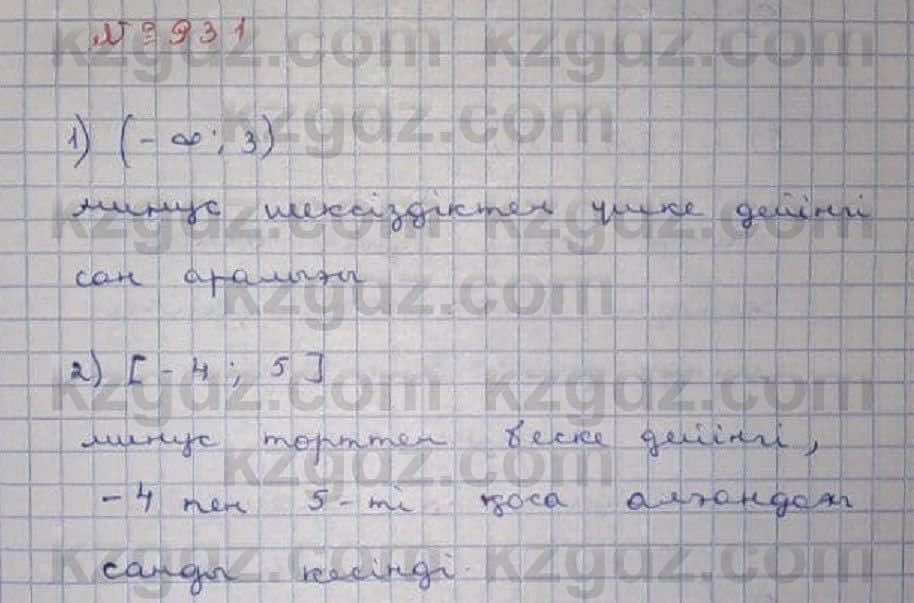 № 931
kzgdz.com kzgdz.com
kzgdz.com
1) (- ∞; 3)
минус шексіздіктен үшке дейінгі
kzgdz.com kzgdz.com
сан аралығы
kzgdz.com
2) [- 4; 5]
kzgdz.com kzgdz.com
минус торттен беске дейінгі,
kzgdz.com
-4 пен 5-ті қоса алғандағы
санды кесінді.
kzgdz.com kzgdz.com